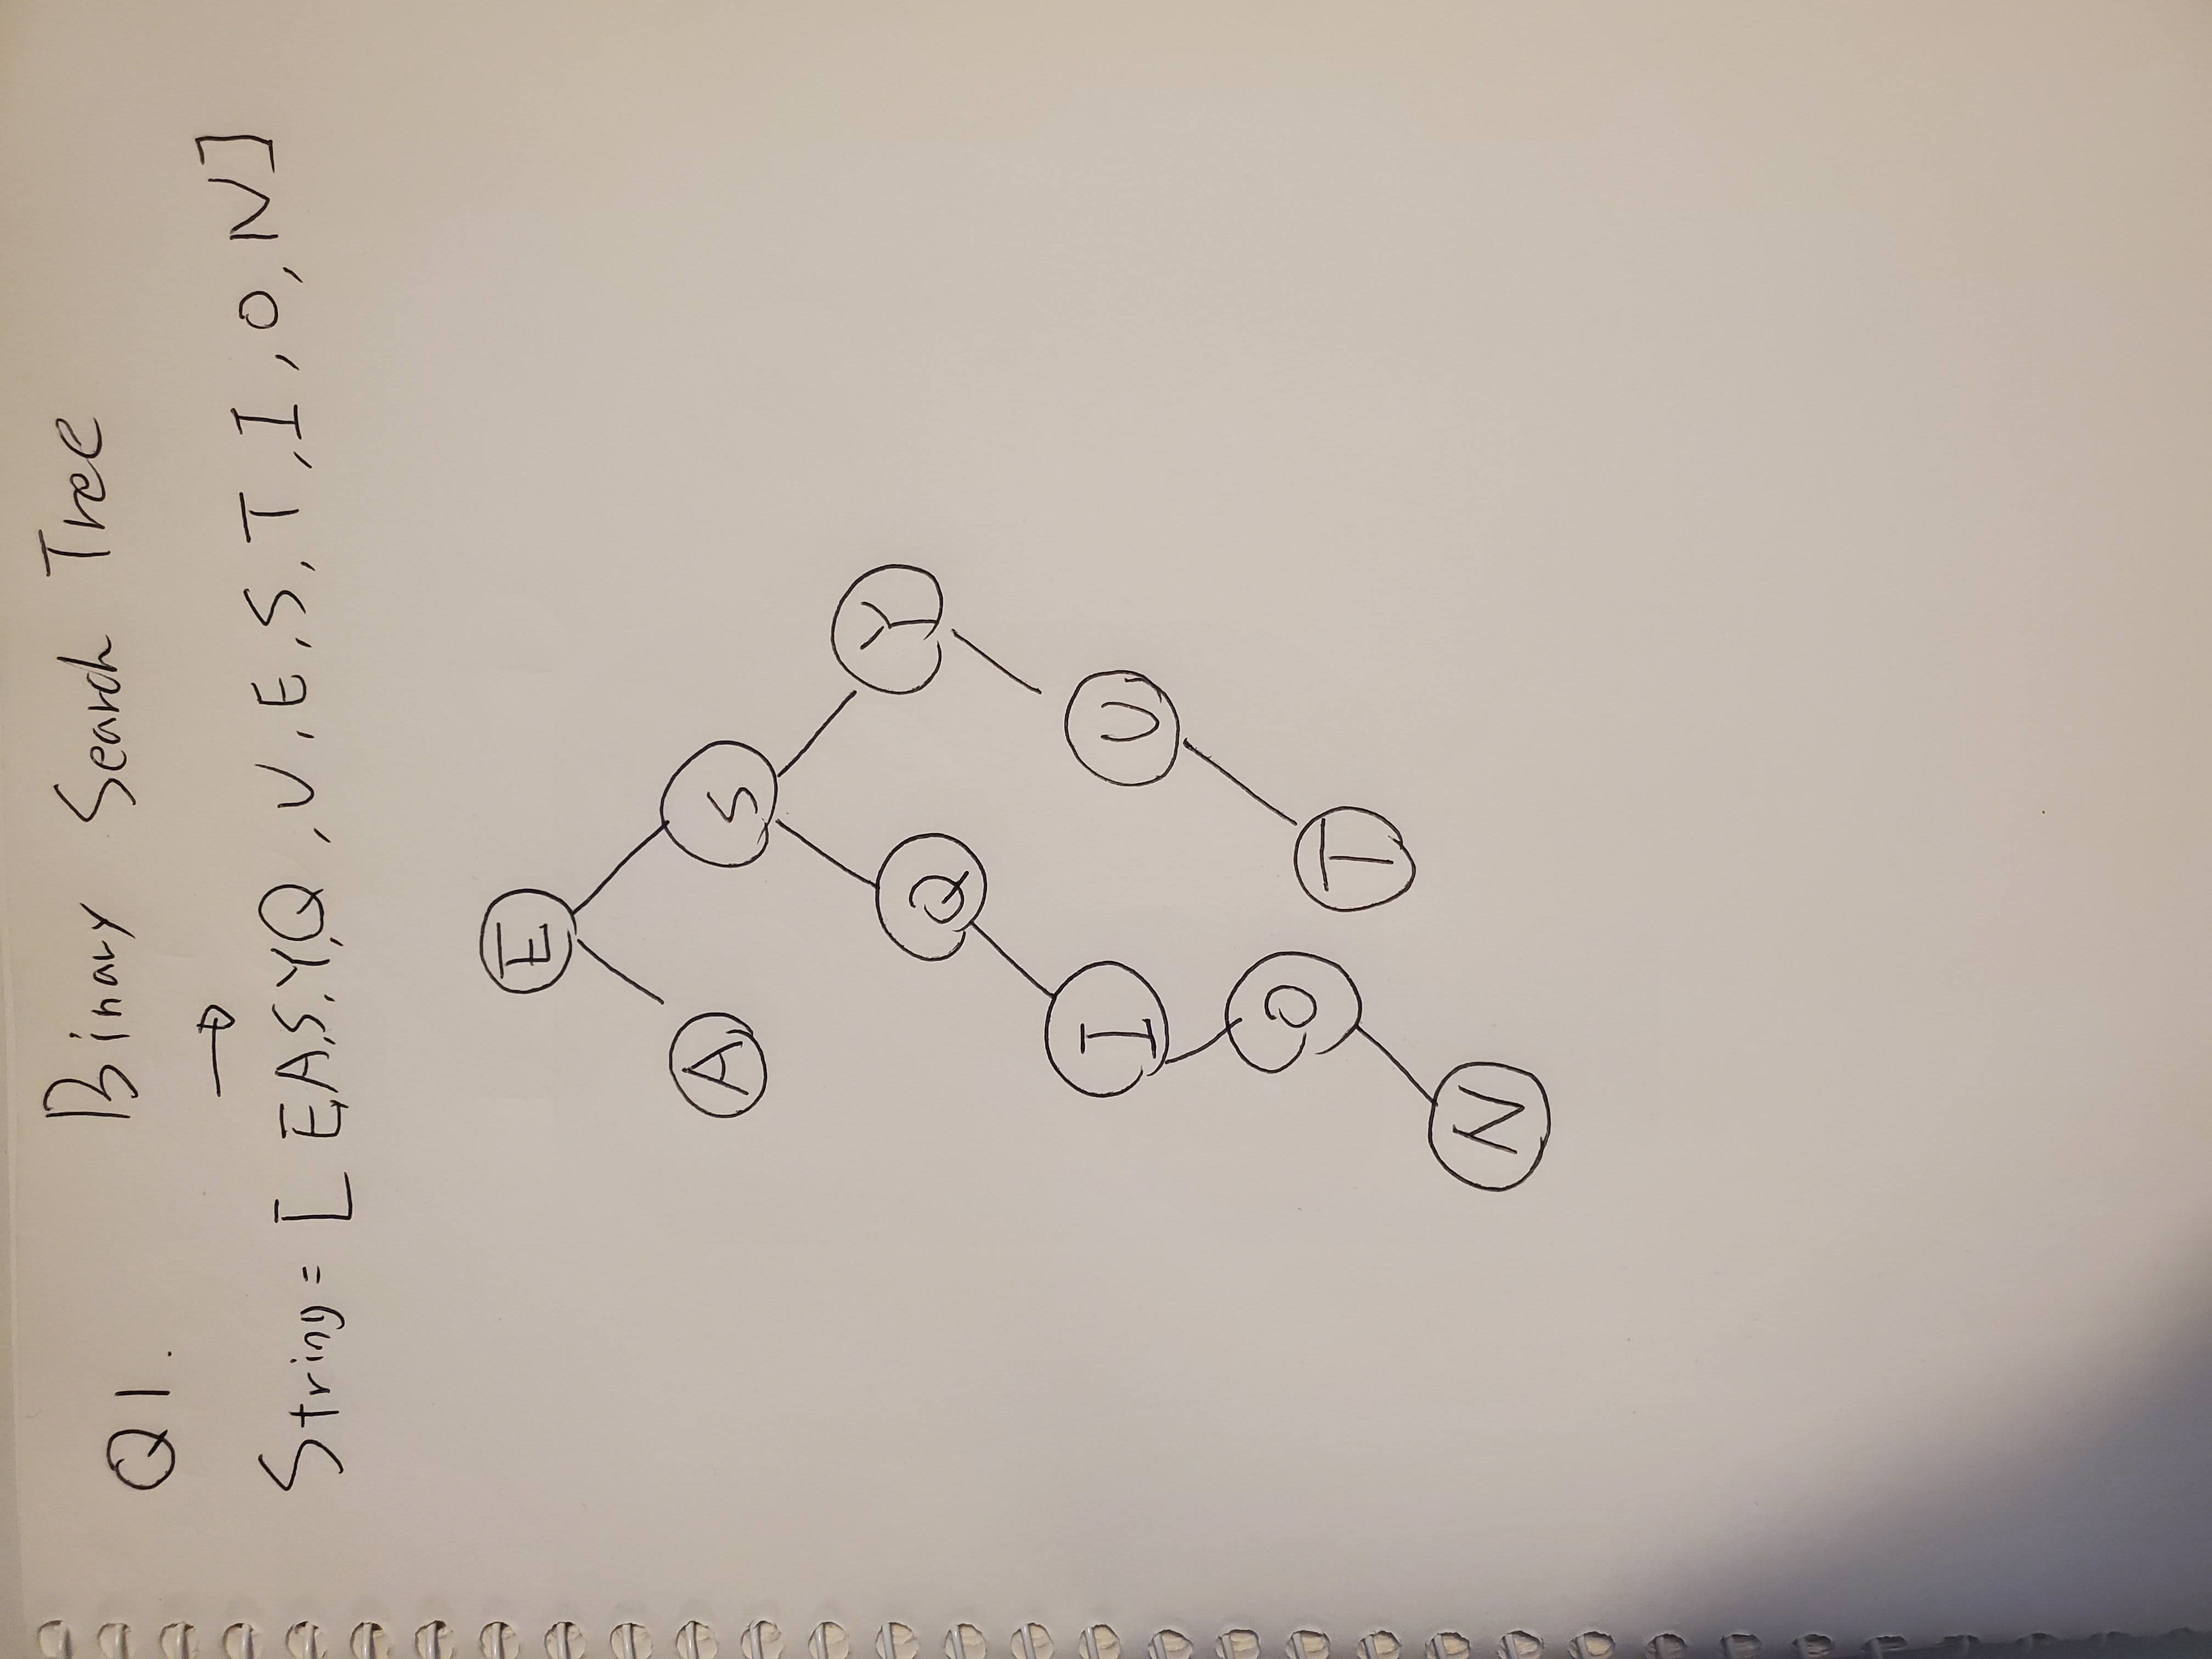 Binary Search Tree
Q1.
String = [ E,A,S,Y,Q ,U,E,S,T,I,O,N]
E
A S
Q Y
I U
O T
N